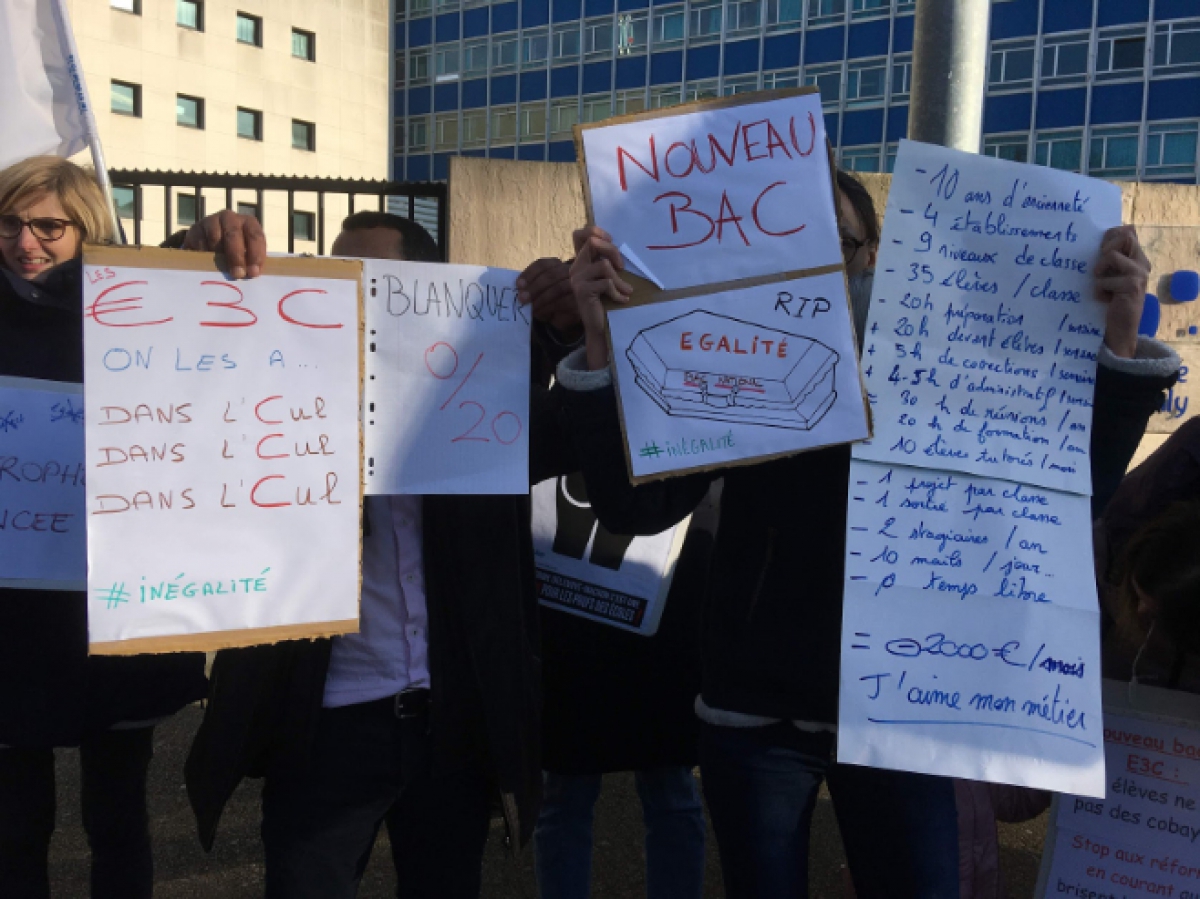 LES
€3C
ON LES A...
DANS L'CUL
DANS L'CUL
DANS L'CUL
#INÉGALITÉ
BLANQUER
0/20
NOUVEAU
BAC
RIP
EGALITÉ
#INÉGALITÉ
- 10 ans d'ancienneté
- 4 établissements
- 9 niveaux de classe
- 35 élèves / classe
- 20h préparation / semaine
+ 20h devant élèves / semaine
+ 5h de corrections / semaine
+ 4-5h d'administratif / semaine
= 30 h de réunions / an
20 h de formation / an
10 élèves tutorés / mois
- 1 projet par classe
- 1 sortie par classe
- 2 stagiaires / an
- 10 mails / jour..
- 0 temps libre
= 2000 € / mois
J'aime mon métier
NCEE
POUR LES PROFS DES ÉCOLES
ouveau ba
E3C :
élèves ne
pas des cobay
Stop aux réfor
en courant
brisent